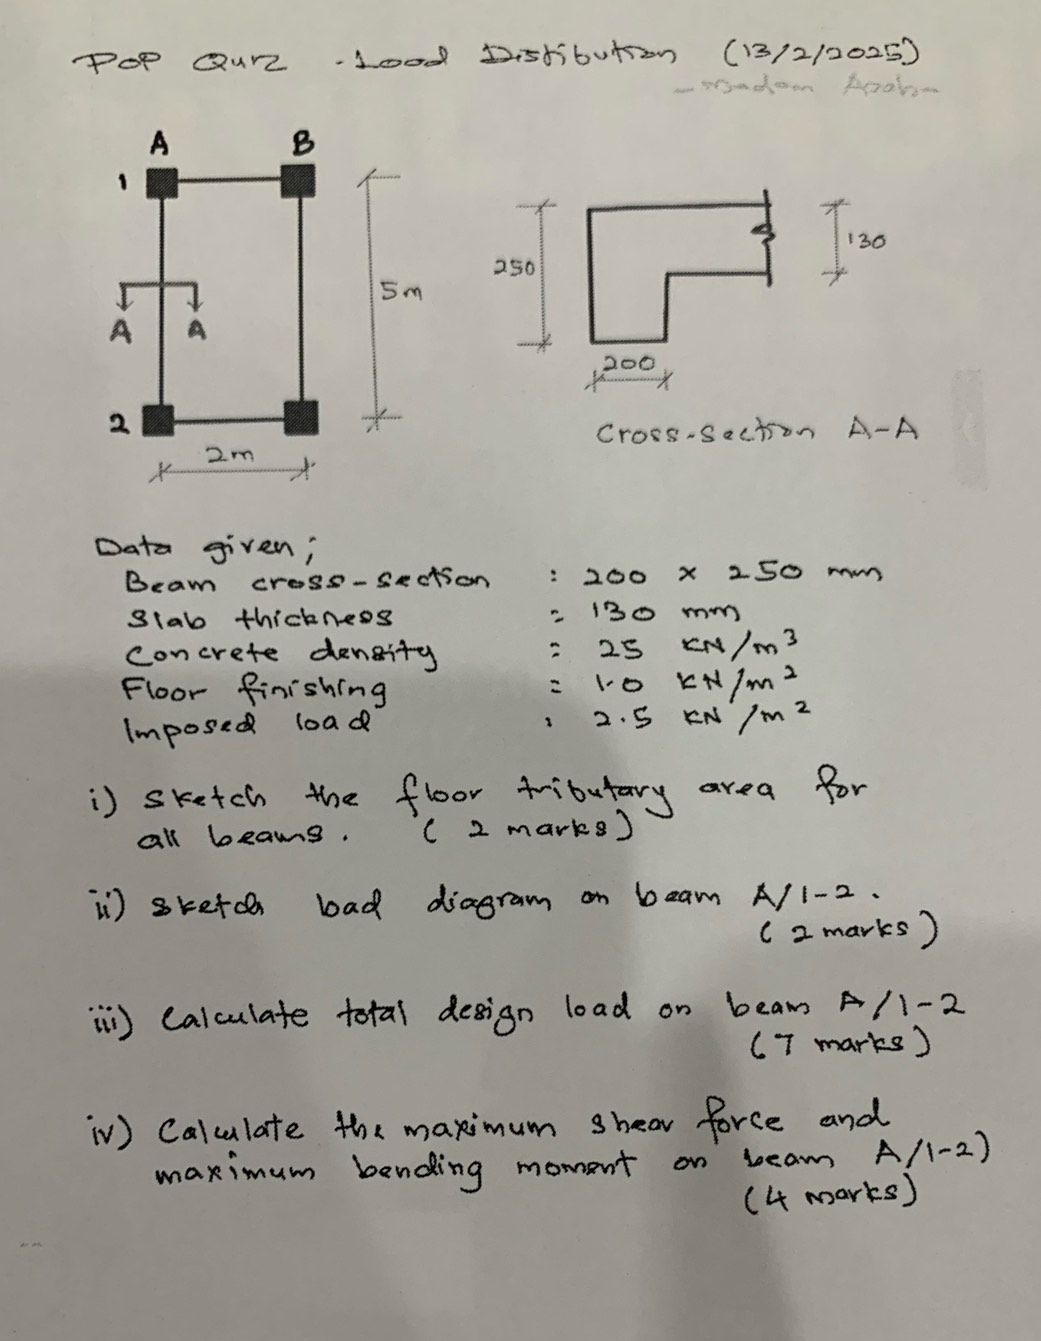 POP Quiz - Load Distibution (13/2/2025)
A B
1
250
130
5m
A A
200
2
Cross-section A-A
2m
Data given;
Beam cross-section : 200 x 250 mm
Slab thickness : 130 mm
Concrete density : 25 KN/m³
Floor finishing : 1.0 KN/m²
Imposed load : 2.5 KN/m²
i) Sketch the floor tributary area for
all beams. (2 marks)
ii) Sketch load diagram on beam A/1-2.
(2 marks)
iii) Calculate total design load on beam A/1-2
(7 marks)
iv) Calculate the maximum shear force and
maximum bending moment on beam A/1-2)
(4 marks)